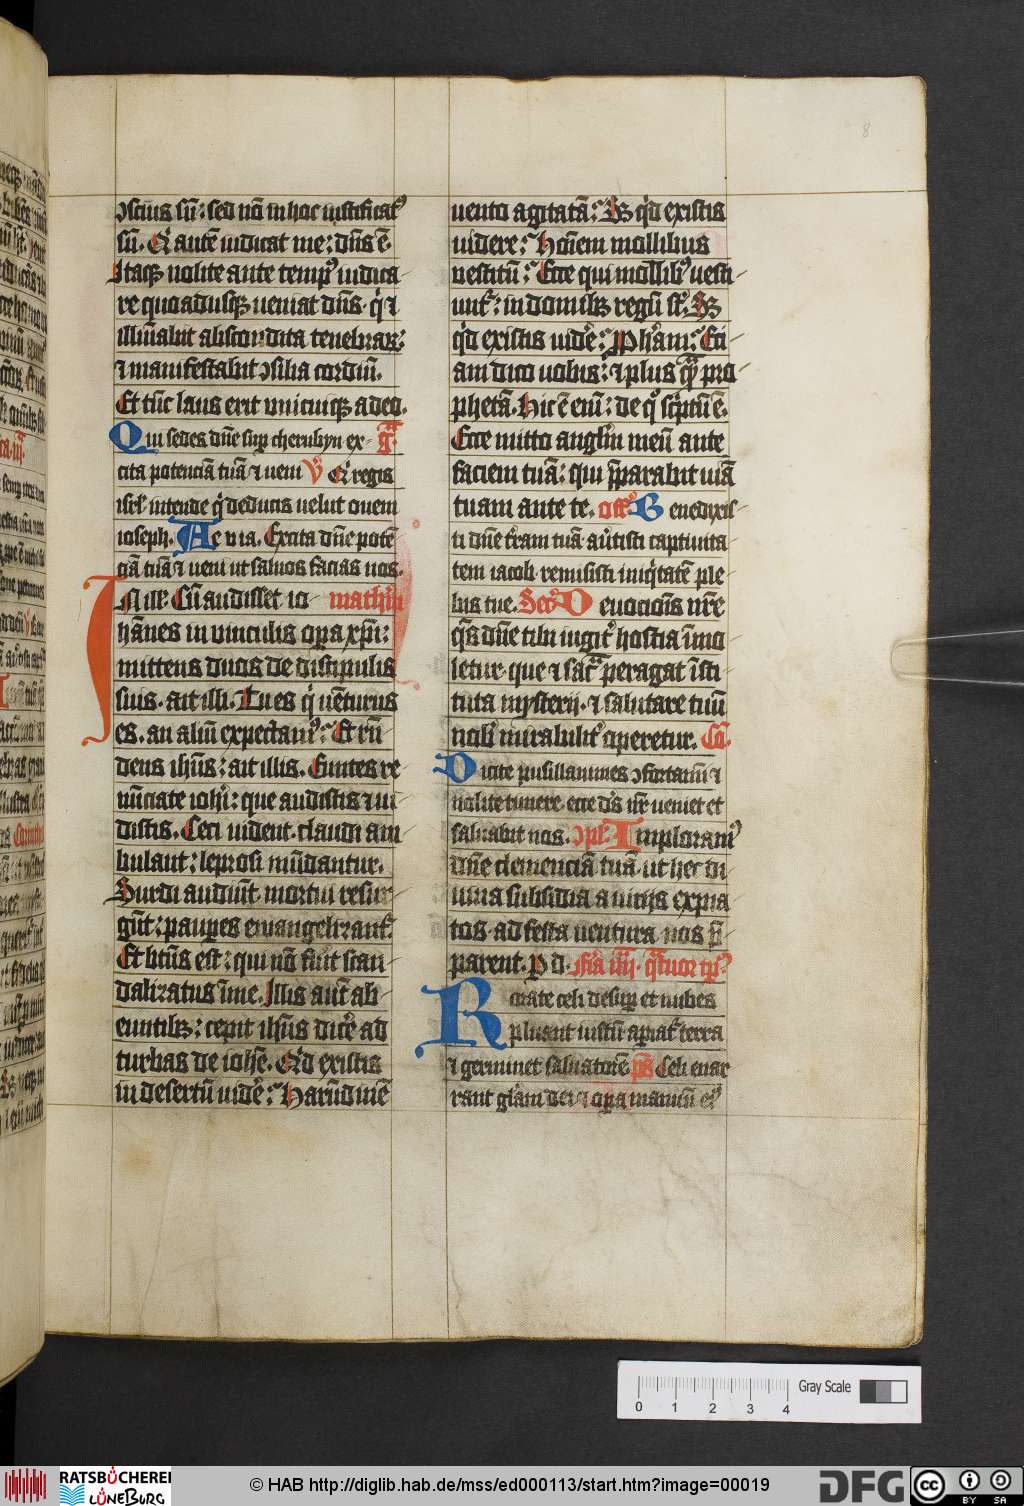 ↄscius sū: sed nō in hoc iustificatꝰ
sū. Qͥ autē iudicat me: dn̄s ē.
Itaqꝫ nolite ante tempꝰ iudica
re quoadusqꝫ ueniat dn̄s. qͥ ⁊
illūīabit abscondita tenebraꝝ:
⁊ manifestabit ↄsilia cordiū.
Et tūc laus erit unicuiqꝫ a deo.
Qui sedes dn̄e suꝑ cherubyn ex- gͣ.
cita potenciā tuā ⁊ ueni V̓ Qͥ regis
isrl̓ intende qͥ deducis uelut ouem
ioseph. Ae v ia. Excita dn̄e potē
ciā tuā ⁊ ueni ut saluos facias nos.
IN ill̓. Cū audisset io matheū
hānes in vinculis oꝑa xp̄i:
mittens duos de discipulis
suis. ait illi. Tu es qͥ uēturus
es. an aliū expectamꝰ: Et rn̄
dens ih̄us: ait illis. Euntes re
nūciate ioh̄i: que audistis ⁊ ui
distis. Ceci uident. claudi am
bulant: leprosi mūdantur.
Surdi audiūt. mortui resur
gūt: pauꝑes ewangelizant᷑.
Et btūs est: qui nō fuīt scan
dalizatus ī me. Illis aūt ab
euntibꝫ: cepit ih̄us dic̓e ad
turbas de ioh̄e. Qͥd existis
in desertū uid̓e: Harūdinē
uento agitatā: Sꝫ qͥd existis
uidere: Hoīem mollibus
uestitū: Ecce qui mollibꝰ uesti
unt᷑: in domibꝫ regū st̄. Sꝫ
qͥd existis uid̓e: Prph̄am: Eci
am dico uobis: ⁊ plus qͣ̄ pro
phetā. Hic ē enī: de qͦ sc̓ptū ē.
Ecce mitto angl̄m meū ante
faciem tuā: qui p̄parabit uiā
tuam ante te. offꝰ Benedixis
ti dn̄e t̓ram tuā au̓tisti captiuita
tem iacob remisisti iniqͥtatē ple
bis tue. Secꝰ Deuociois nr̄e
qͣs dn̄e tibi iugit̓ hostia īmo
letur. que ⁊ sac̓ͣ peragat īsti
tuta mysterij. ⁊ salutare tuū
nob̓ mirabilit̓ operetur. Cō.
Dicite pusillanimes ↄfortamī ⁊
nolite timere. ecce ds̄ nr̄ ueniet et
saluabit nos. ↄpl̓. Imploramꝰ
dn̄e clemenciā tuā. ut hec di
uina subsidia a uicijs expia
tos. ad festa uentura nos p̄
parent. P d. Fīa iiij. qͣtuor tp̄ꝝ
Rorate celi desuꝑ et nubes
pluant iustū apiat᷑ terra
⁊ germinet saluatorē. ps̄ Celi enar
rant gl̄am dei ⁊ oꝑa manuū eiꝰ
8
0 1 2 3 4
Gray Scale
RATSBÜCHEREI
LÜNEBURG
© HAB http://diglib.hab.de/mss/ed000113/start.htm?image=00019
DFG
cc BY SA